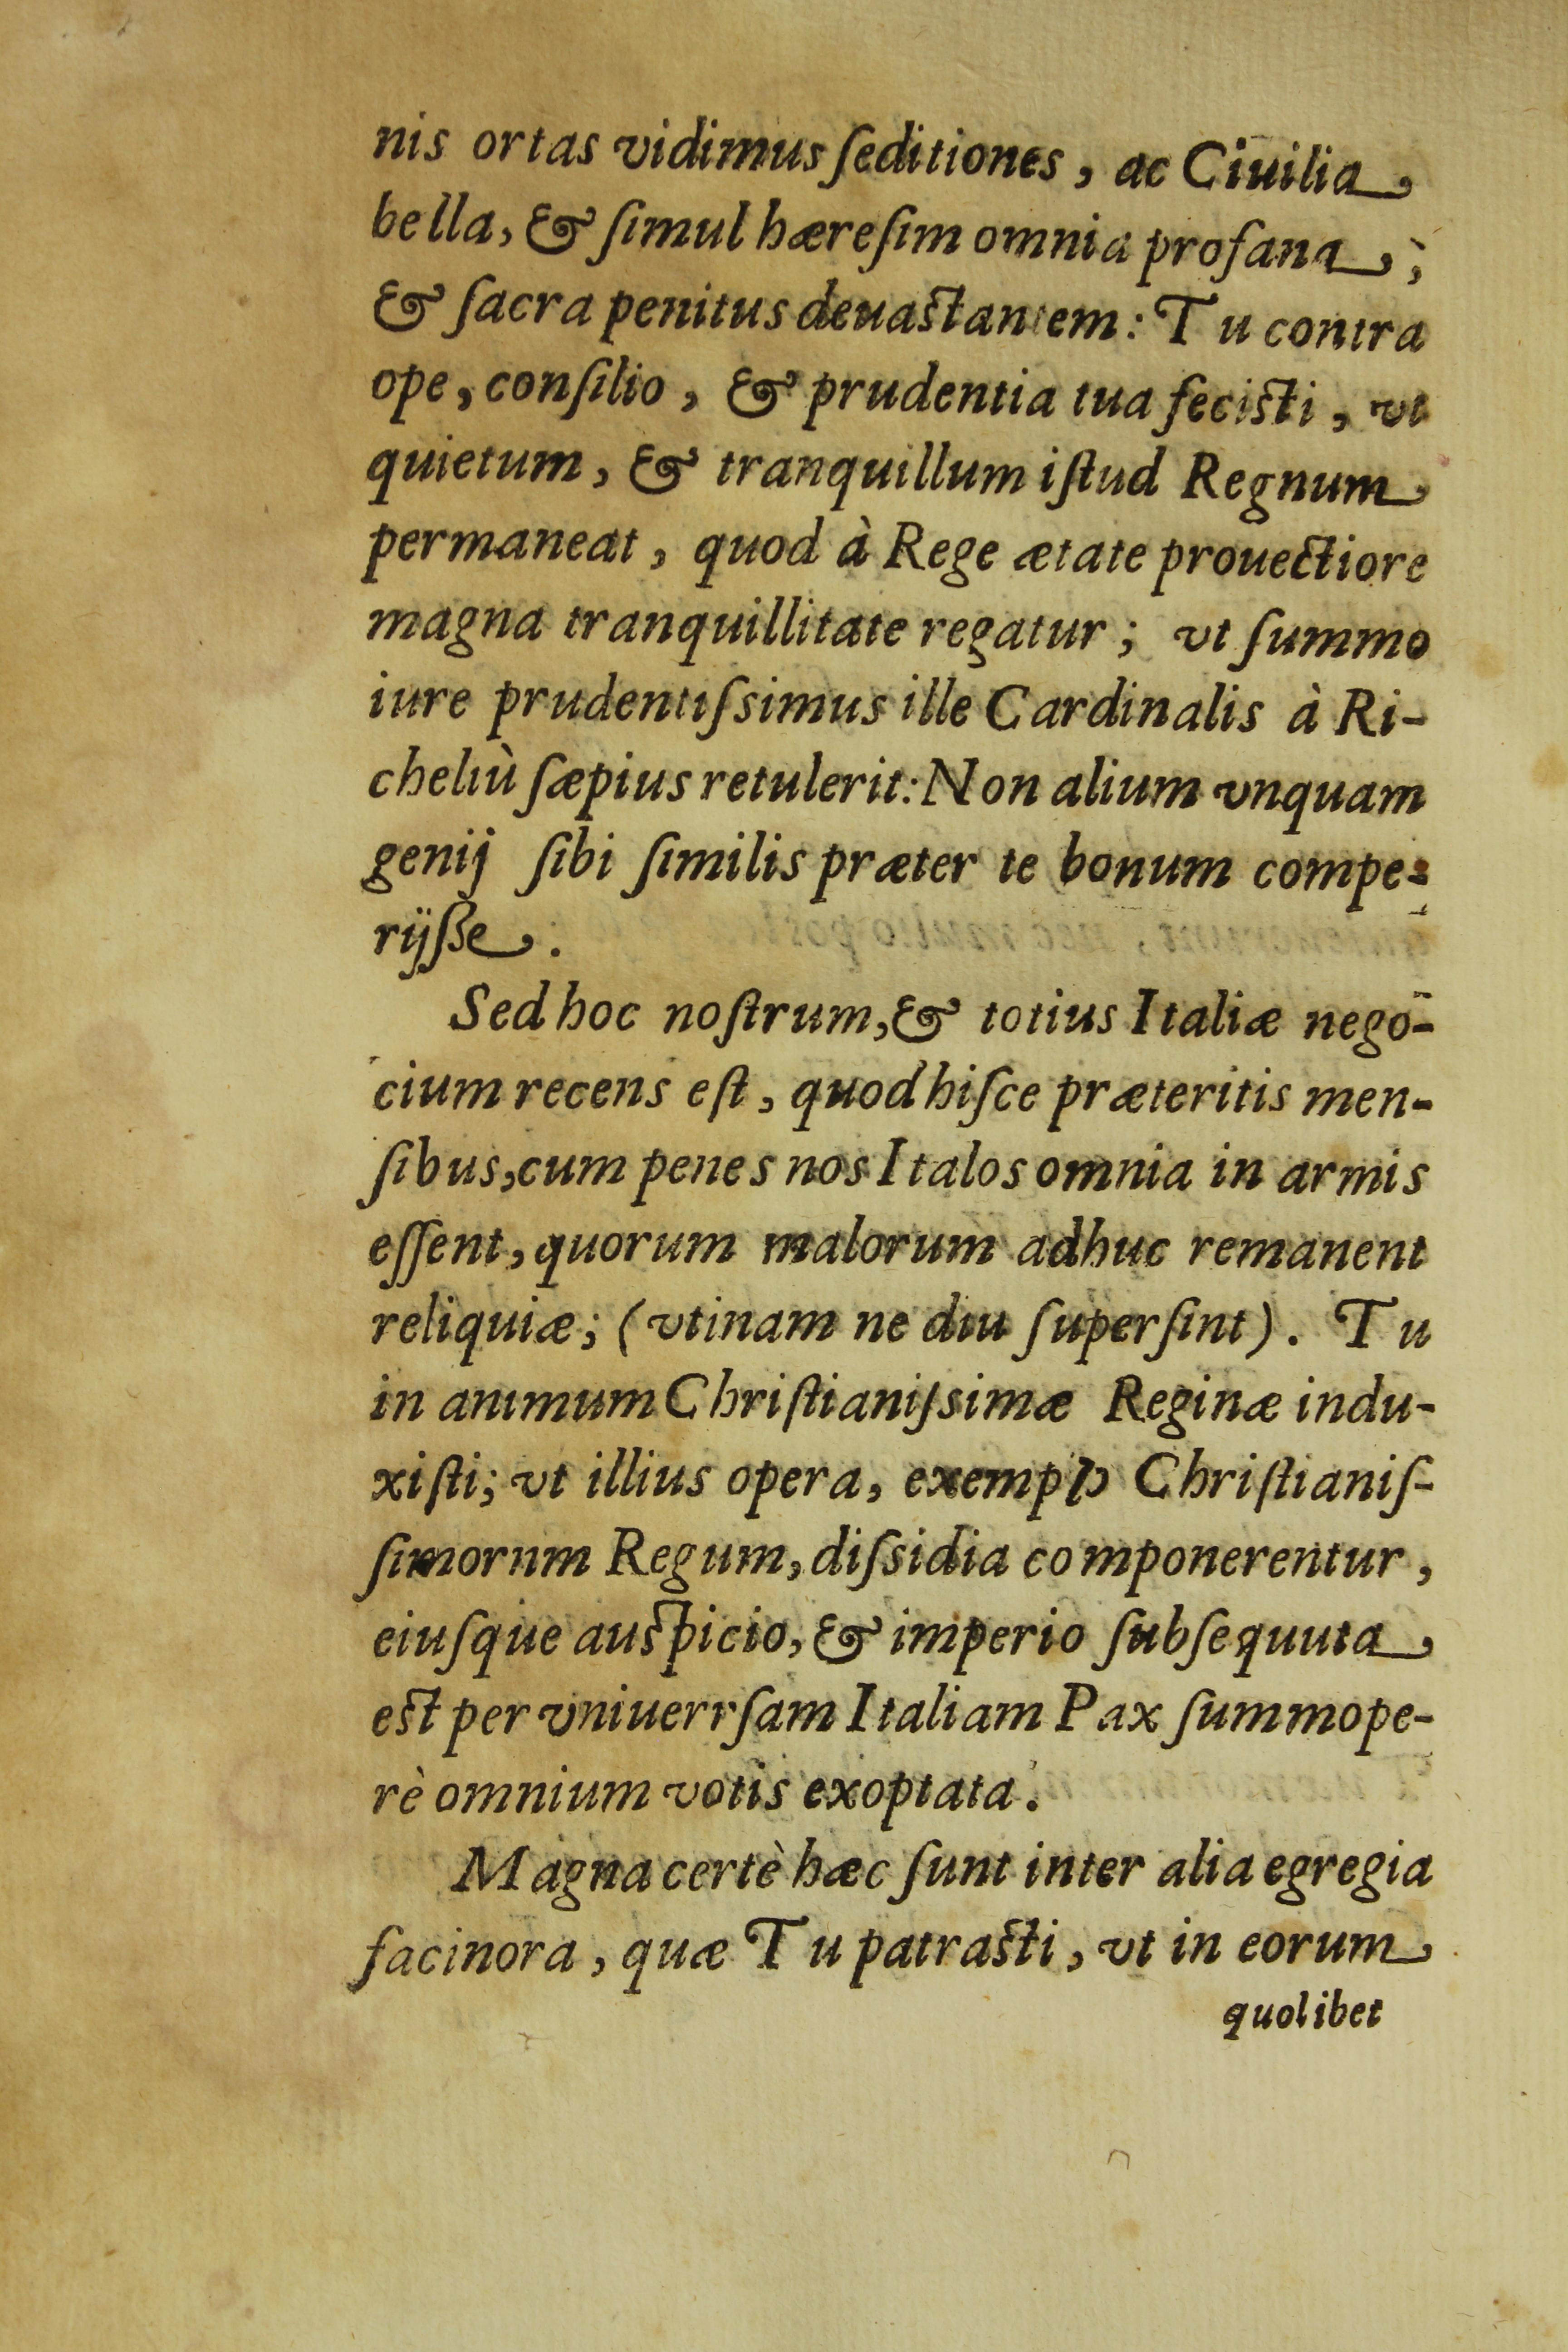 nis ortas vidimus ſeditiones, ac Ciuilia
bella, & ſimul hæreſim omnia profana,
& ſacra penitus deuastantem: Tu contra
ope, conſilio, & prudentia tua fecisti, vt
quietum, & tranquillum iſtud Regnum
permaneat, quod à Rege ætate prouectiore
magna tranquillitate regatur; vt ſummo
iure prudentiſsimus ille Cardinalis à Ri-
cheliù ſæpius retulerit: Non alium vnquam
genij ſibi ſimilis præter te bonum compe-
rijſſe.
Sed hoc noſtrum, & totius Italiæ nego-
cium recens eſt, quod hiſce præteritis men-
ſibus, cum penes nos Italos omnia in armis
eſſent, quorum malorum adhuc remanent
reliquiæ; (vtinam ne diu ſuperſint). Tu
in animum Chriſtianiſsimæ Reginæ indu-
xiſti; vt illius opera, exemplo Chriſtianiſ-
ſimornm Regum, diſsidia componerentur,
eiuſque auspicio, & imperio ſubſequuta
est per vniuerrſam Italiam Pax ſummope-
rè omnium votis exoptata.
Magna certè hæc ſunt inter alia egregia
facinora, quæ Tu patrasti, vt in eorum
quolibet